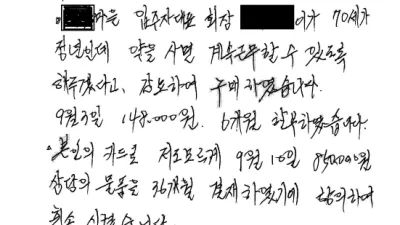 마을 입주자대표 회장 이가 70세가
정년인데 약을 사면 계속근무할 수 있도록
해주겠다고, 강요하여 구매하였습니다.
9월 3일 148,000원. 6개월 할부하였습니다.
본인의 카드로 저도모르게 9월 10일 850,000원
상당의 물품을 36개월 결제하였기에 항의하여
취소 시켰습니다.